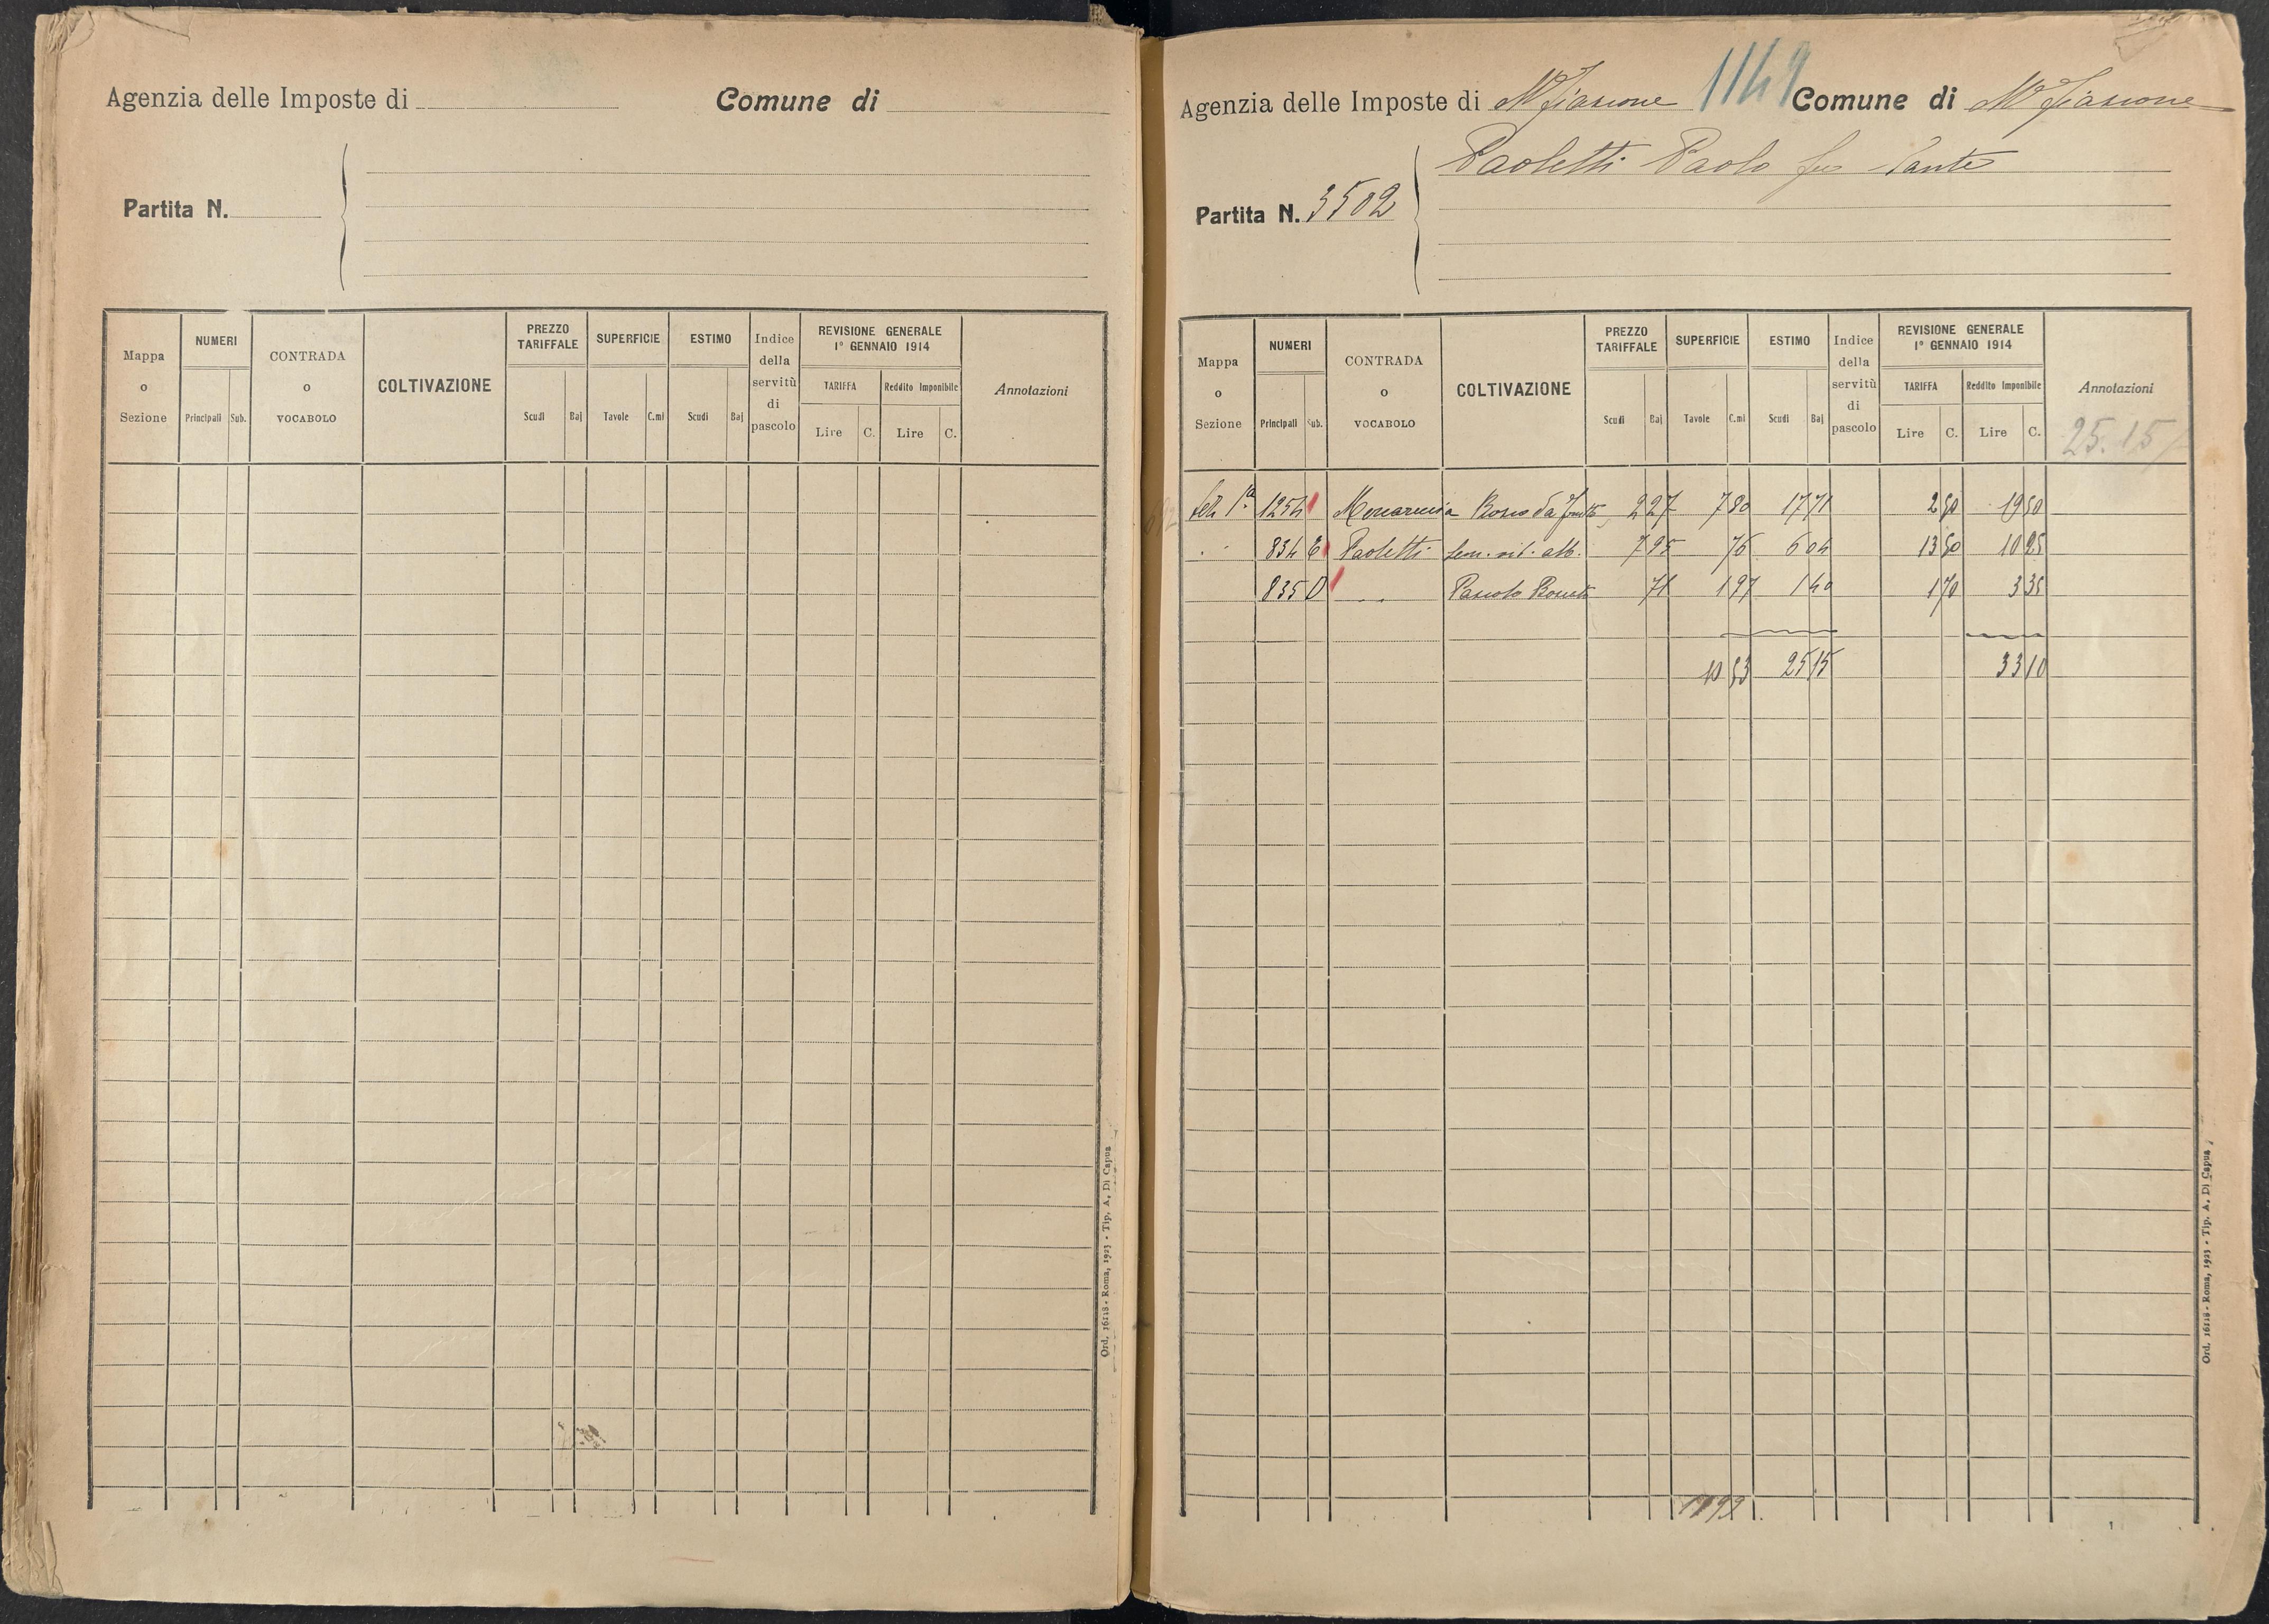 Agenzia delle Imposte di
Comune di
Partita N.
Mappa o Sezione
NUMERI
Principali Sub.
CONTRADA o VOCABOLO
COLTIVAZIONE
PREZZO TARIFFALE
Scudi Baj
SUPERFICIE
Tavole C.mi
ESTIMO
Scudi Baj
Indice della servitù di pascolo
REVISIONE GENERALE
1º GENNAIO 1914
TARIFFA Reddito Imponibile
Lire C. Lire C.
Annotazioni
Ord. 16118 - Roma, 1923 - Tip. A. Di Capua
1149
Agenzia delle Imposte di Mº Fiascone Comune di Mº Fiascone
Paoletti Paolo fu Sante
Partita N. 3502
Mappa o Sezione
NUMERI
Principali Sub.
CONTRADA o VOCABOLO
COLTIVAZIONE
PREZZO TARIFFALE
Scudi Baj
SUPERFICIE
Tavole C.mi
ESTIMO
Scudi Baj
Indice della servitù di pascolo
REVISIONE GENERALE
1º GENNAIO 1914
TARIFFA Reddito Imponibile
Lire C. Lire C.
Annotazioni
25.15
1ª 1254 Bosco da frutto 2 27 7 80 17 71 2 50 19 50
834 E Paoletti Sem. vit. alb. 7 95 76 6 04 13 50 10 25
835 D Pascolo 71 1 97 1 40 1 70 3 35
10 53 25 15 33 10
1199
Ord. 16118 - Roma, 1923 - Tip. A. Di Capua